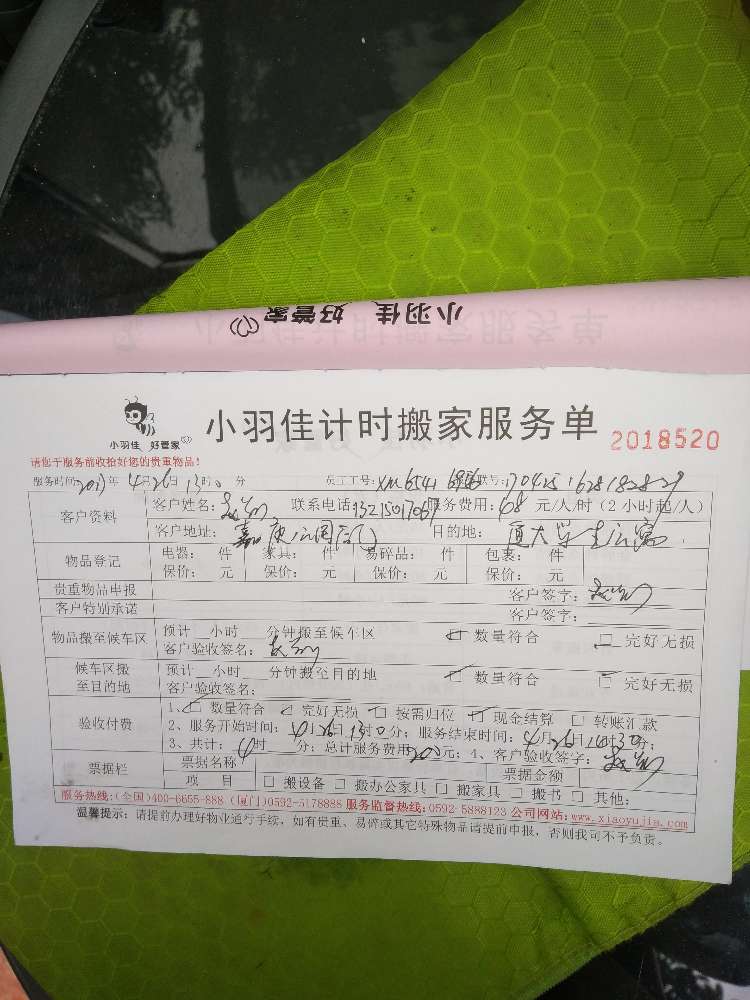 小羽佳 好管家
小羽佳 好管家
小羽佳计时搬家服务单
2018520
请您于服务前收拾好您的贵重物品！
服务时间2017年4月26日13时0分 员工工号: 联号:
客户资料
客户姓名: 联系电话 服务费用: 元/人/时(2小时起/人)
客户地址: 嘉庚 目的地: 大学生公寓
物品登记
电器: 件 家具: 件 易碎品: 件 包裹: 件
保价: 元 保价: 元 保价: 元 保价: 元
贵重物品申报 客户签字:
客户特别承诺 客户签字:
物品搬至候车区 预计__小时__分钟搬至候车区 数量符合 完好无损
客户验收签名:
候车区搬至目的地 预计__小时__分钟搬至目的地 数量符合 完好无损
客户验收签名:
验收付费
1、数量符合 完好无损 按需归位 现金结算 转账汇款
2、服务开始时间: 4月26日13时0分; 服务结束时间: 4月26日 时30分;
3、共计: 时__分; 总计服务费用200元; 4、客户验收签字:
票据栏 票据名称 票据金额
项 目 搬设备 搬办公家具 搬家具 搬书 其他:
服务热线:(全国)400-6655-888 (厦门)0592-5178888 服务监督热线:0592-5888123 公司网站:www.xiaoyujia.com
温馨提示: 请提前办理好物业通行手续, 如有贵重、易碎或其它特殊物品请提前申报, 否则我司不予负责。